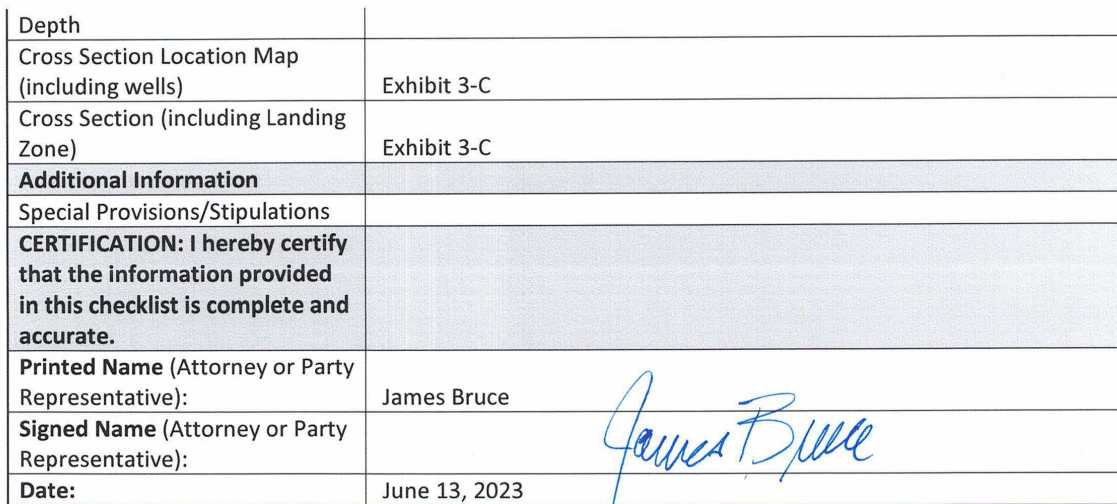 Depth
Cross Section Location Map
(including wells) Exhibit 3-C
Cross Section (including Landing
Zone) Exhibit 3-C
Additional Information
Special Provisions/Stipulations
CERTIFICATION: I hereby certify
that the information provided
in this checklist is complete and
accurate.
Printed Name (Attorney or Party
Representative): James Bruce
Signed Name (Attorney or Party
Representative): James Bruce
Date: June 13, 2023